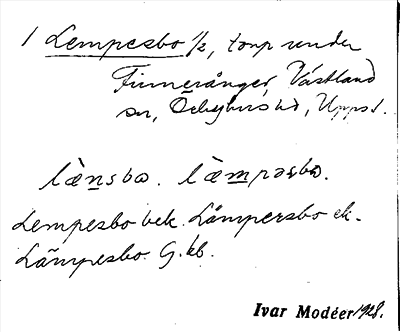 1 Lempesbo 1/2, torp under
Finnerånger, Västland
sn, Örbyhus hd, Upps l.
lænsbo. læmpəsbo.
Lempesbo bek. Lämpersbo ek.
Lämpesbo G. kb.
Ivar Modéer 1928.